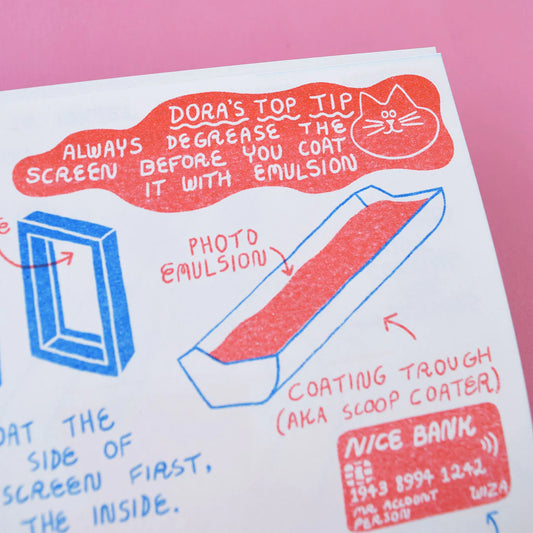 DORA'S TOP TIP
ALWAYS DEGREASE THE
SCREEN BEFORE YOU COAT
IT WITH EMULSION
PHOTO
EMULSION
COATING TROUGH
(AKA SCOOP COATER)
NICE BANK
1943 8994 1242
MR ACCOUNT
PERSON
WIZA
THE
SIDE OF
SCREEN FIRST,
THE INSIDE.